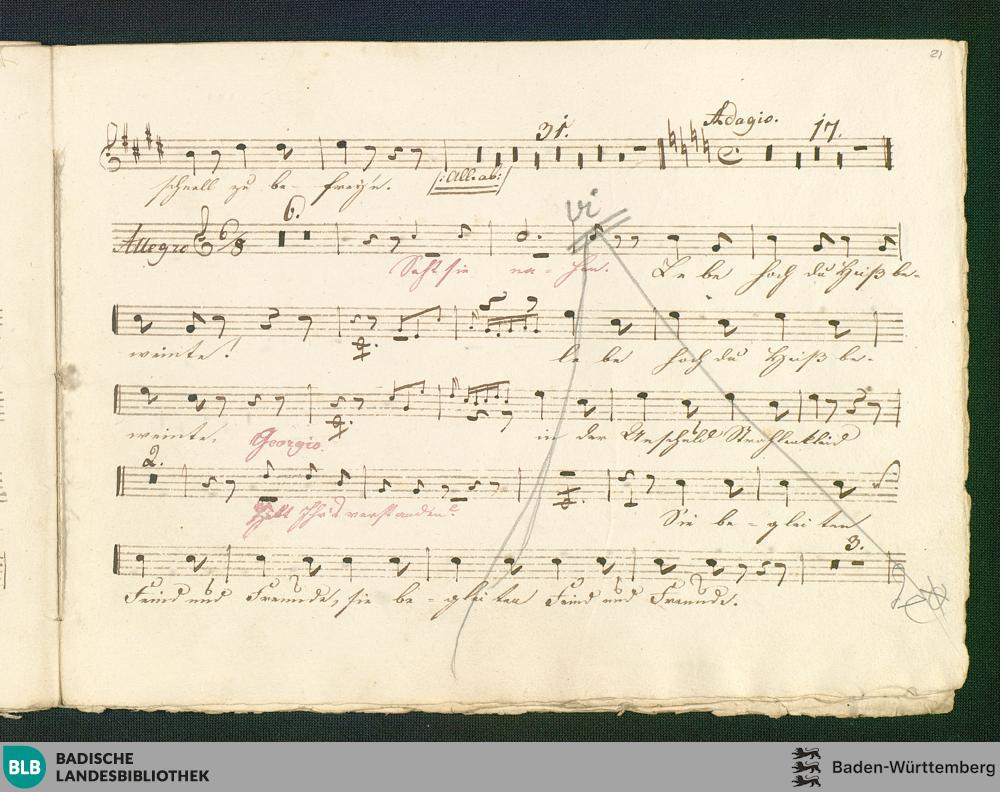 21
31. Adagio. 17.
schnell zu be- frey'n. /: All: ab: /
6. vi
Allegro 6/8
Seht sie na- hen. Le be hoch du Heiß be-
weinte! le be hoch du Heiß be-
weinte, Georgio. in der Unschuld Strahlenkleid
2.
Habt Ihr's verstanden?
Sie be- glei ten
3.
Feind und Freunde, sie be- glei ten Feind und Freunde.
BLB BADISCHE
LANDESBIBLIOTHEK
Baden-Württemberg